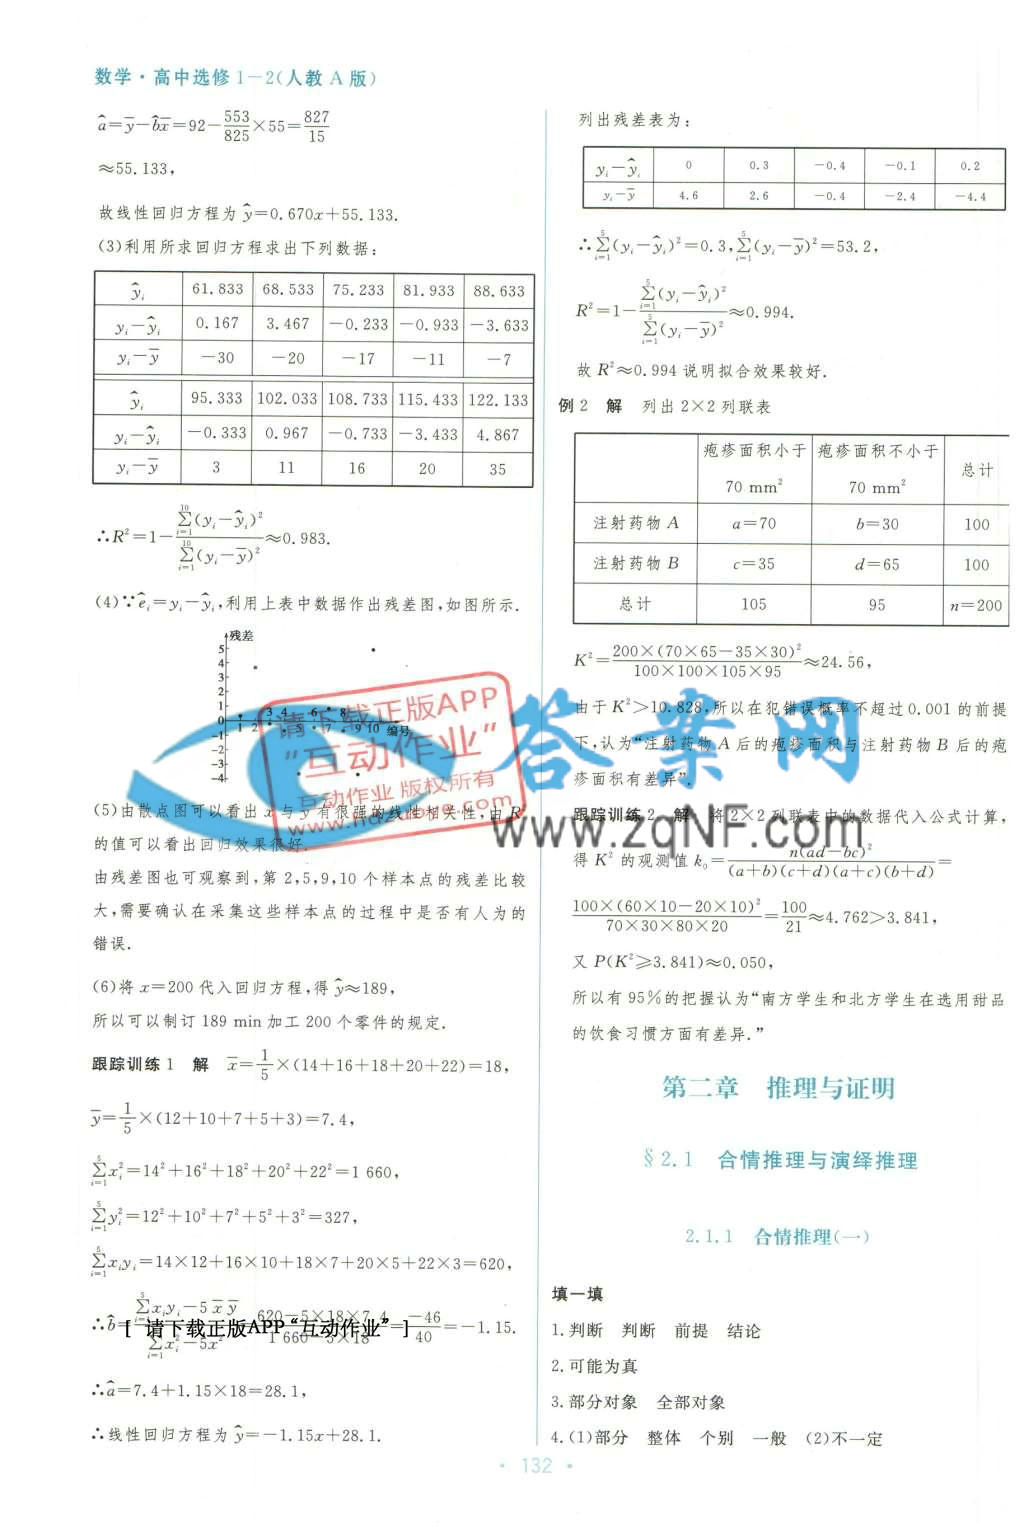 数学·高中选修1－2(人教A版)
â=y̅－b̂x̅=92－553/825×55=827/15
≈55.133,
故线性回归方程为ŷ=0.670x+55.133.
(3)利用所求回归方程求出下列数据:
ŷᵢ 61.833 68.533 75.233 81.933 88.633
yᵢ－ŷᵢ 0.167 3.467 －0.233 －0.933 －3.633
yᵢ－y̅ －30 －20 －17 －11 －7
ŷᵢ 95.333 102.033 108.733 115.433 122.133
yᵢ－ŷᵢ －0.333 0.967 －0.733 －3.433 4.867
yᵢ－y̅ 3 11 16 20 35
∴R²=1－∑(i=1→10)(yᵢ－ŷᵢ)²/∑(i=1→10)(yᵢ－y̅)²≈0.983.
(4)∵êᵢ=yᵢ－ŷᵢ,利用上表中数据作出残差图,如图所示.
残差
5
4
3
2
1
0
－1
－2
－3
－4
1 2 3 4 5 6 7 8 9 10 编号
(5)由散点图可以看出x与y有很强的线性相关性,由R²
的值可以看出回归效果很好.
由残差图也可观察到,第2,5,9,10个样本点的残差比较
大,需要确认在采集这些样本点的过程中是否有人为的
错误.
(6)将x=200代入回归方程,得ŷ≈189,
所以可以制订189 min加工200个零件的规定.
跟踪训练1 解 x̅=1/5×(14+16+18+20+22)=18,
y̅=1/5×(12+10+7+5+3)=7.4,
∑(i=1→5)xᵢ²=14²+16²+18²+20²+22²=1 660,
∑(i=1→5)yᵢ²=12²+10²+7²+5²+3²=327,
∑(i=1→5)xᵢyᵢ=14×12+16×10+18×7+20×5+22×3=620,
∴b̂=∑(i=1→5)xᵢyᵢ－5x̅ y̅/∑(i=1→5)xᵢ²－5x̅²=620－5×18×7.4/1 660－5×18²=－46/40=－1.15.
[ 请下载正版APP“互动作业” ]
∴â=7.4+1.15×18=28.1,
∴线性回归方程为ŷ=－1.15x+28.1.
列出残差表为:
yᵢ－ŷᵢ 0 0.3 －0.4 －0.1 0.2
yᵢ－y̅ 4.6 2.6 －0.4 －2.4 －4.4
∴∑(i=1→5)(yᵢ－ŷᵢ)²=0.3,∑(i=1→5)(yᵢ－y̅)²=53.2,
R²=1－∑(i=1→5)(yᵢ－ŷᵢ)²/∑(i=1→5)(yᵢ－y̅)²≈0.994.
故R²≈0.994说明拟合效果较好.
例2 解 列出2×2列联表
疱疹面积小于70 mm² 疱疹面积不小于70 mm² 总计
注射药物A a=70 b=30 100
注射药物B c=35 d=65 100
总计 105 95 n=200
K²=200×(70×65－35×30)²/100×100×105×95≈24.56,
由于K²>10.828,所以在犯错误概率不超过0.001的前提
下,认为“注射药物A后的疱疹面积与注射药物B后的疱
疹面积有差异”.
跟踪训练2 解 将2×2列联表中的数据代入公式计算,
得K²的观测值k₀=n(ad－bc)²/(a+b)(c+d)(a+c)(b+d)=
100×(60×10－20×10)²/70×30×80×20=100/21≈4.762>3.841,
又P(K²≥3.841)≈0.050,
所以有95%的把握认为“南方学生和北方学生在选用甜品
的饮食习惯方面有差异.”
第二章 推理与证明
§2.1 合情推理与演绎推理
2.1.1 合情推理(一)
填一填
1.判断 判断 前提 结论
2.可能为真
3.部分对象 全部对象
4.(1)部分 整体 个别 一般 (2)不一定
·132·
请下载正版APP
“互动作业”
互动作业 版权所有
答案网
www.zqNF.com